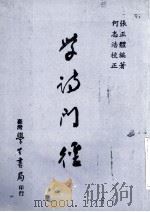 張正體編著
何志浩校正
學詩門徑
臺灣學生書局印行